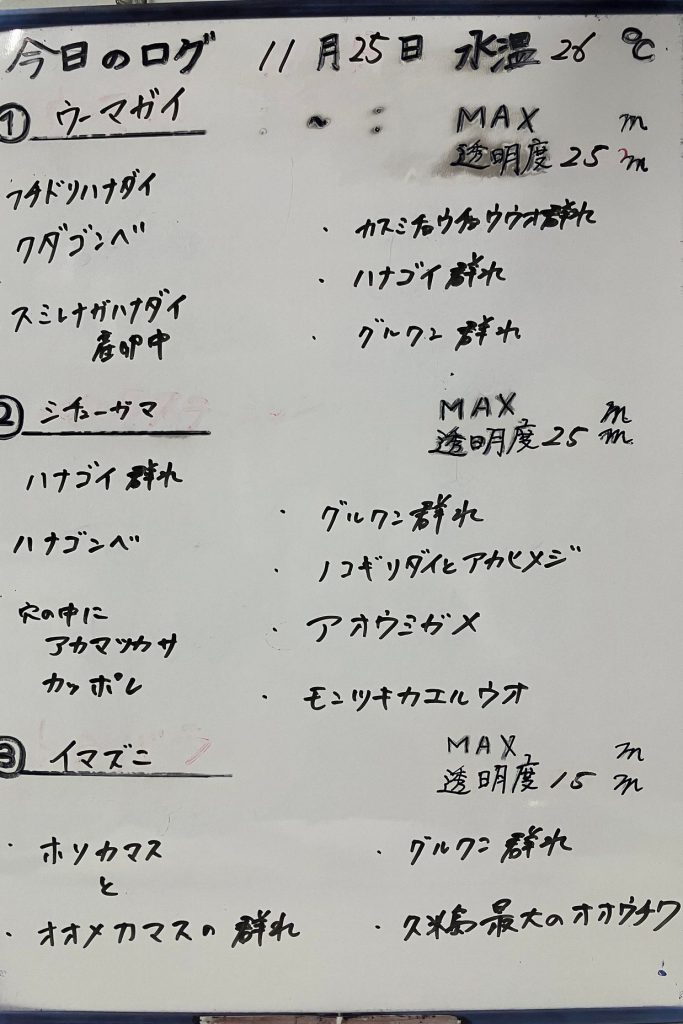 今日のログ 11月25日 水温26℃
① ウーマガイ ~ : MAX m
透明度25m
フチドリハナダイ
クダゴンベ
スミレナガハナダイ
産卵中
・カスミチョウチョウウオ群れ
・ハナゴイ群れ
・グルクン群れ
② シチューガマ MAX m
透明度25m
ハナゴイ群れ
ハナゴンベ
穴の中に
アカマツカサ
カッポレ
・グルクン群れ
・ノコギリダイとアカヒメジ
・アオウミガメ
・モンツキカエルウオ
③ イマズニ MAX m
透明度15m
・ホソカマス
と
・オオメカマスの群れ
・グルクン群れ
・久米島最大のオオウチワ